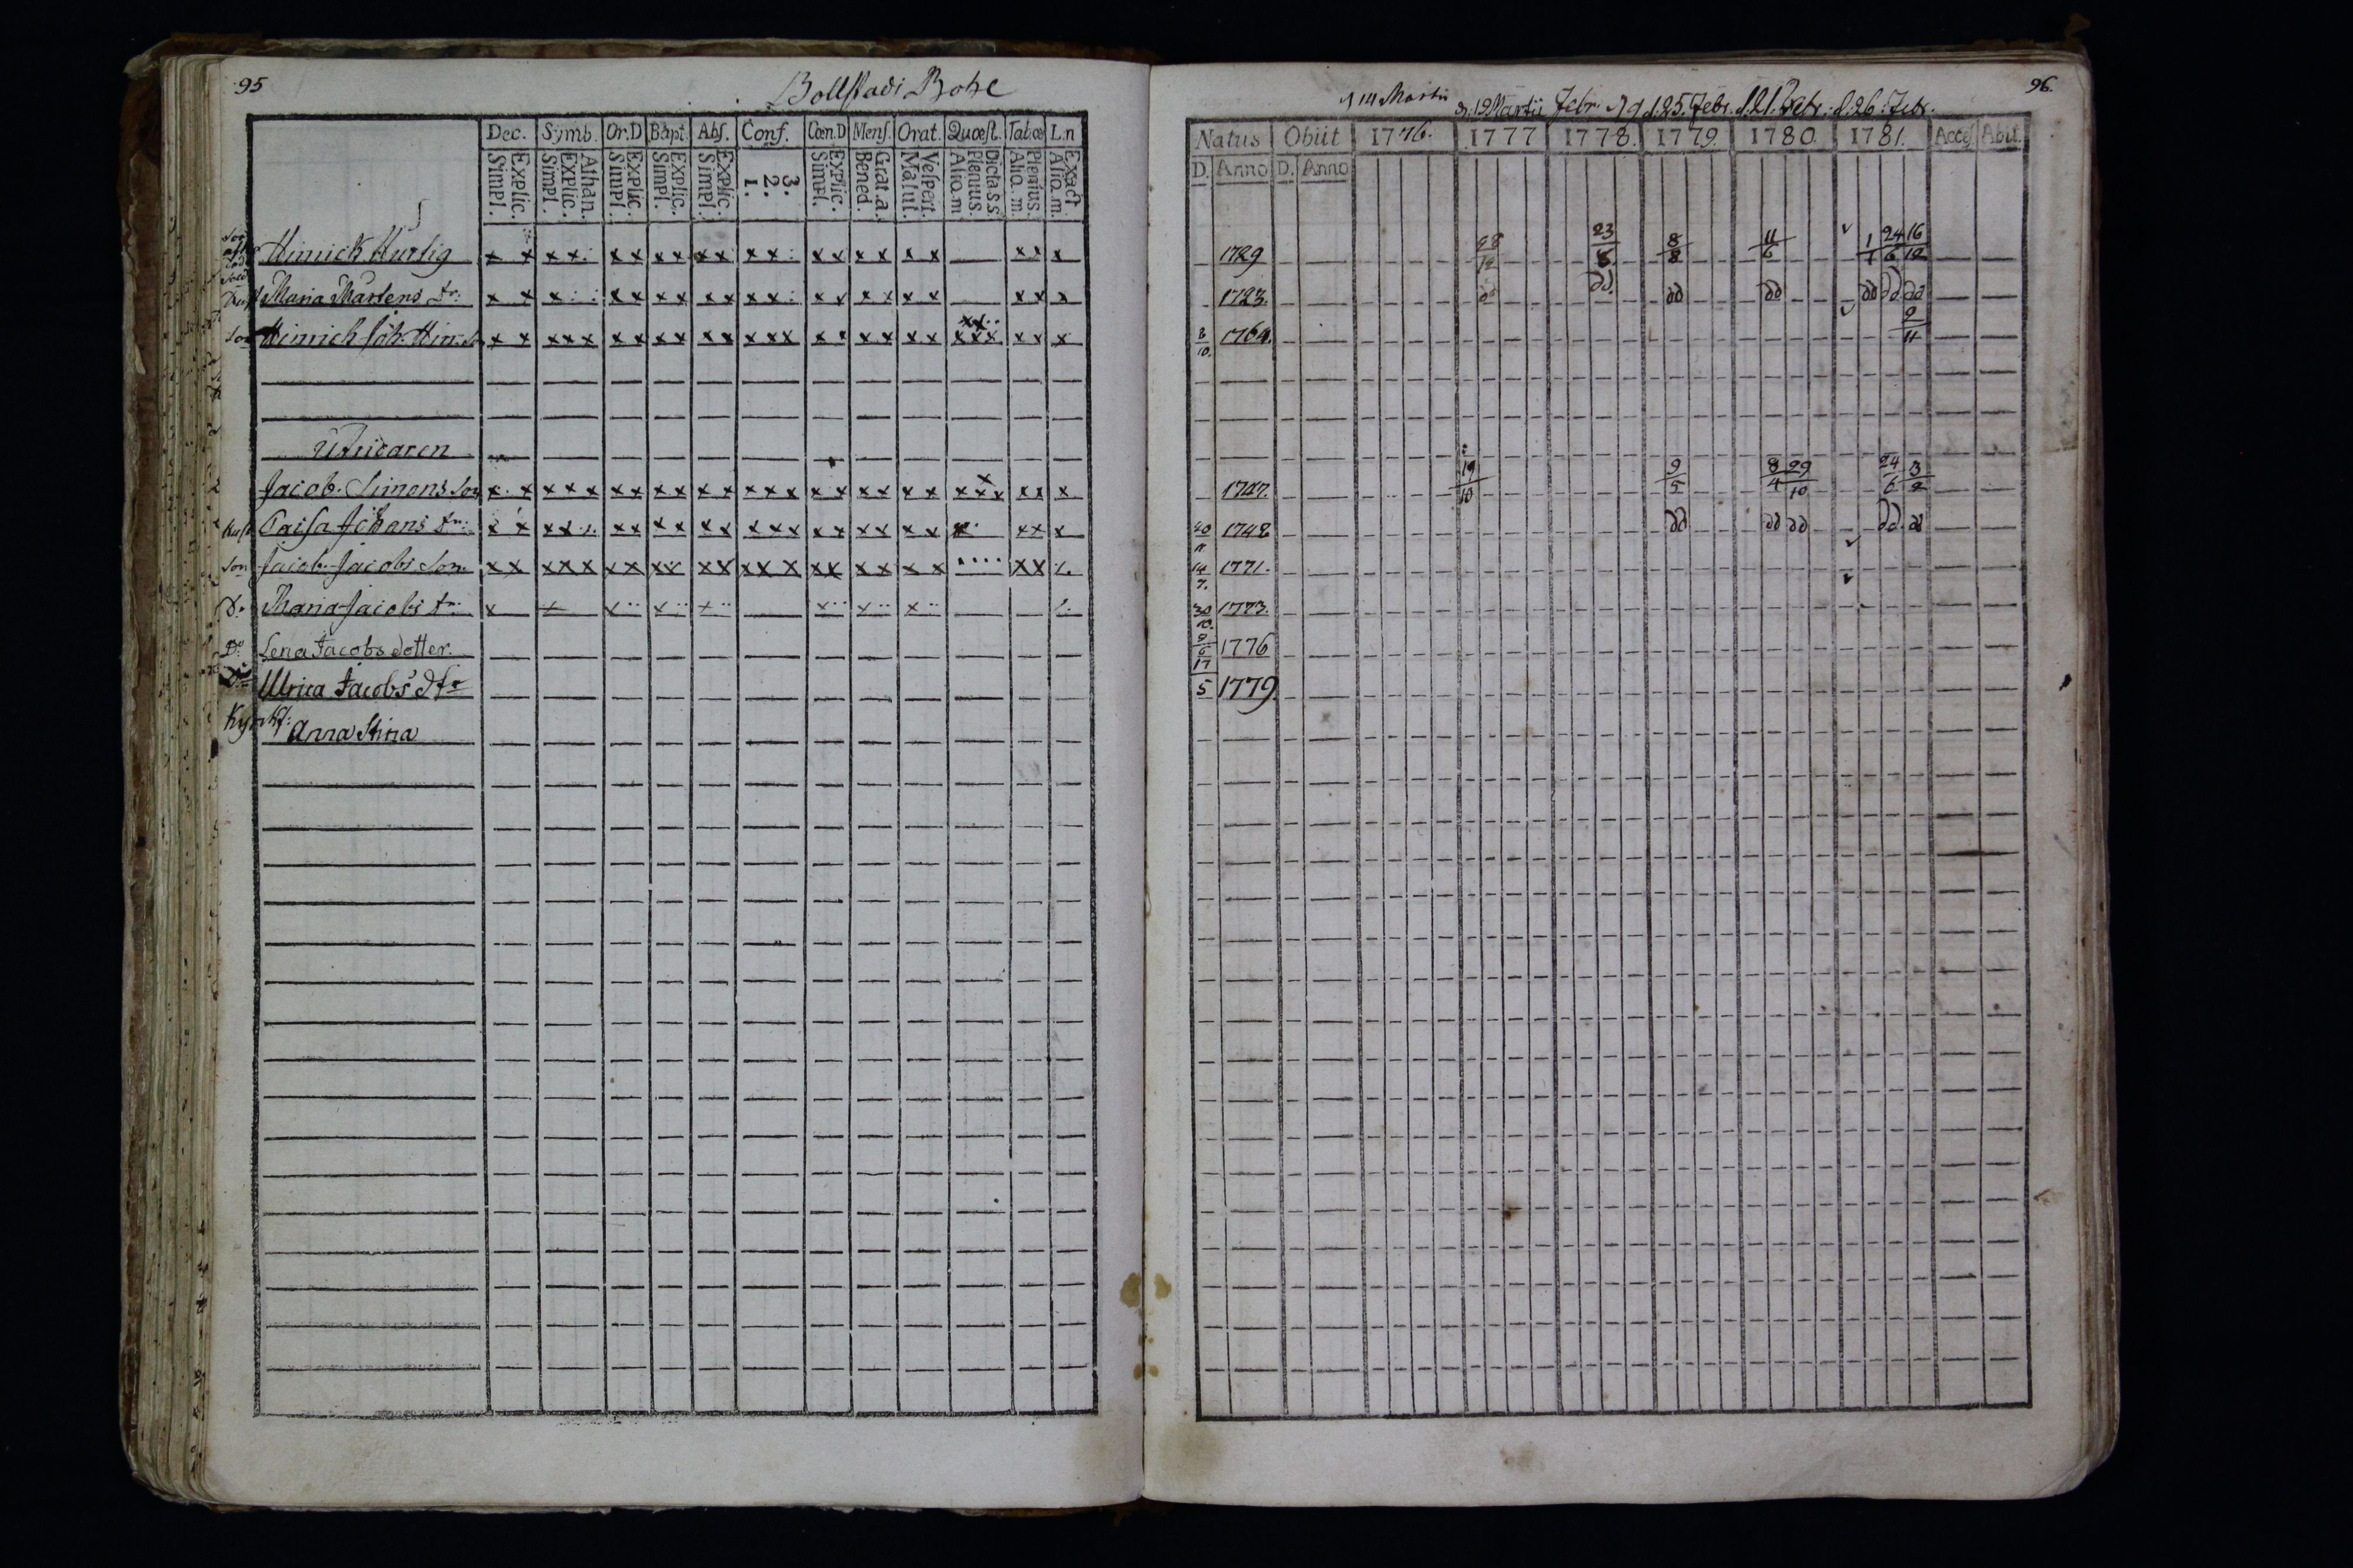 95
Bollstadi Bohe
Dec. Symb. Or.D Bapt. Abs. Conf. Cœn.D Mens. Orat. Quæst. Tab.œ L.n
Simpl. Explic. Simpl. Explic. Athan. Simpl. Explic. Simpl. Explic. Simpl. Explic. 1. 2. 3. Simpl. Explic. Bened. Grat.a. Matut. Vespert. Alio.m Plenius. Dicta.s.s. Alio.m. Plenius. Alio.m. Exact
Hinrick Hurtig x x x x x x x x x x x x x x x x x x x x x x
Maria Mårtens dr: x x x x x x x x x x x x x x x x x x x x
Son Hinrich Joh. Hin. x x x x x x x x x x x x x x x x x x x x x x x x x x x
Utridaren
Jacob Simons Son x x x x x x x x x x x x x x x x x x x x x x x x x x x
Hust Caisa Johans dr:
Son Jacob Jacobs Son x x x x x x x x x x x x x x x x x x x x x x
Do Maria Jacobs dr:
Do Lena Jacobs dotter.
Do Ulrica Jacobs dtr
Anna Stina
96.
14 Martii d. 19 Martii Febr. d. 25. Febr. d. 21. Febr. d. 26. Febr.
Natus Obiit 1776. 1777 1778. 1779. 1780. 1781. Acces Abit.
D. Anno D. Anno
1729 28/12 23/8 8/8 11/6 1/1 24/6 16/12
1723. dd dd. dd dd dd dd dd
8/10. 1764. 9/11
1727. 19/10 9/5 8/4 29/10 24/6 3/2
1748 dd dd dd dd. dd
14/7. 1771.
30/10. 1773.
9/6 1776
17/5 1779.